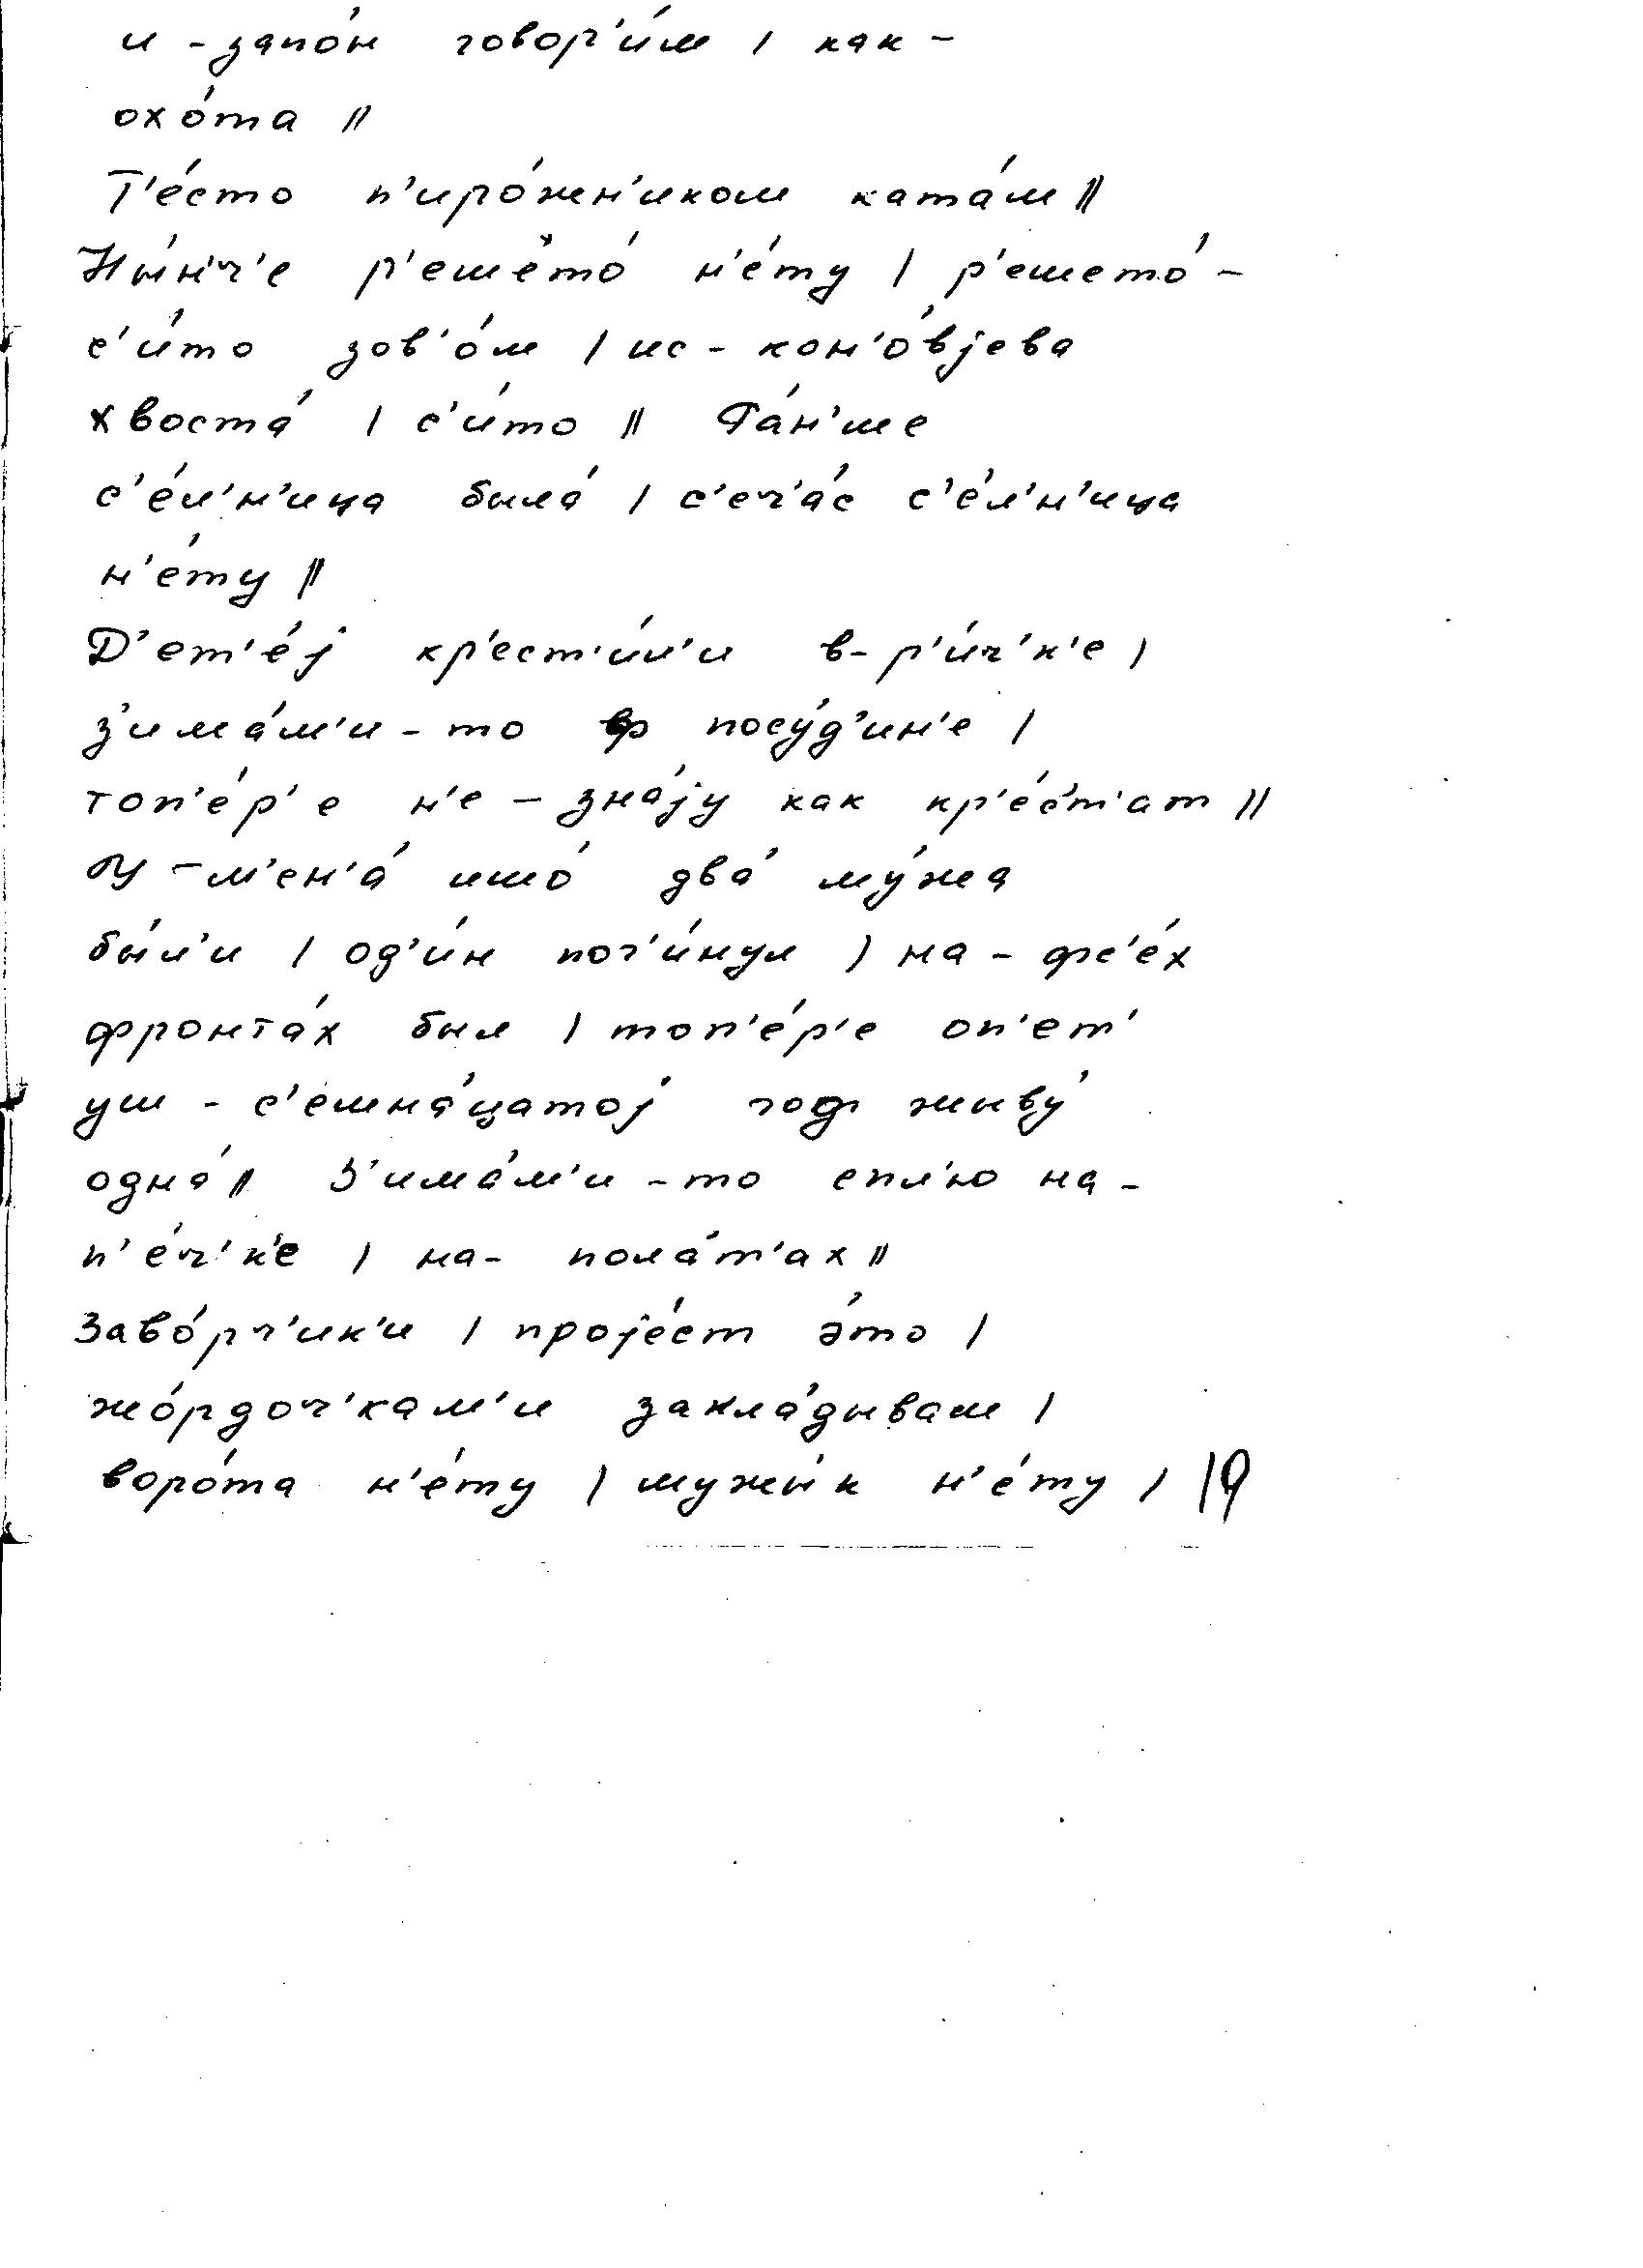 и - запо́н говор'и́м / как -
охо́та //
Т'е́сто п'иро́жн'иком ката́м //
Ны́н'ч'е р'ешето́ н'е́ту / р'ешето́ -
с'и́то зов'о́м / ис - кон'о́вјева
хвоста́ / с'и́то // Ра́н'ше
с'е́л'н'ица была́ / с'еч'а́с с'е́л'н'ица
н'е́ту //
Д'ет'е́ј кр'ест'и́л'и в - р'и́ч'к'е /
з'има́м'и - то ф посу́д'ин'е /
топ'е́р'е н'е - зна́ју как кр'е́с'т'ат //
У - м'ен'а́ ишо́ два́ му́жа
бы́л'и / од'и́н пог'и́нул / на - фс'е́х
фронта́х был / топ'е́р'е оп'ет'
уш - с'емна́цатој год живу́
одна́ // З'има́м'и - то сплю на -
п'е́ч'к'е / на - пола́т'ах //
Заво́рч'ик'и / пројест э́то /
жо́рдоч'кам'и закла́дывам /
воро́та н'е́ту / мужы́к н'е́ту / 19